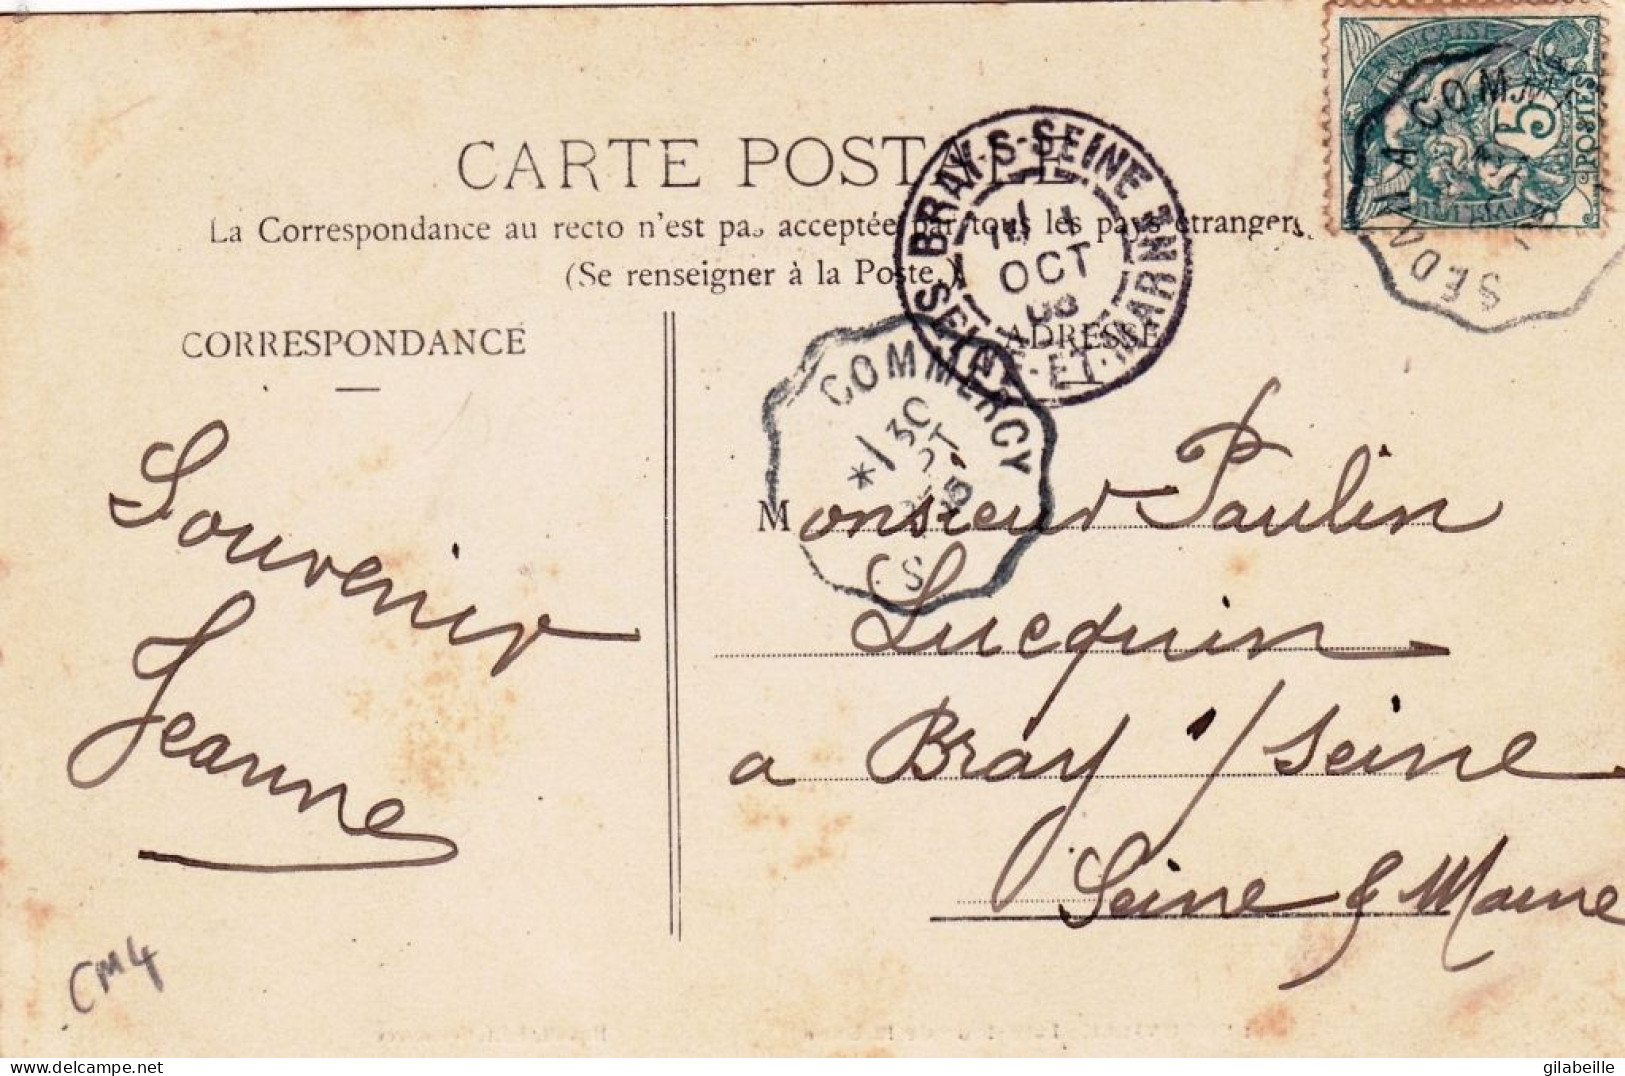 CARTE POSTALE
La Correspondance au recto n'est pas acceptée par tous les pays étrangers
(Se renseigner à la Poste.)
CORRESPONDANCE
ADRESSE
FRANÇAISE
5
POSTES
BRAY-S-SEINE
OCT
SEINE-ET-MARNE
COMMERCY
30
Souvenir
Jeanne
Monsieur Paulin
Lucquin
a Bray s/Seine
Seine & Marne
CM4
gilabeille